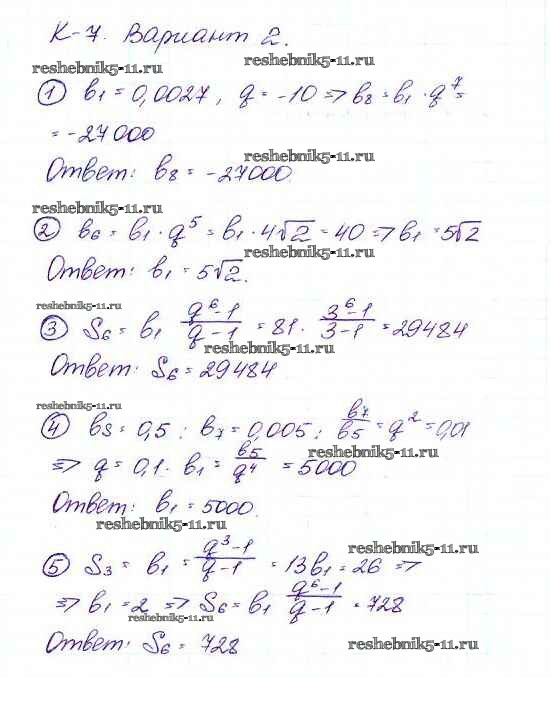 К-7. Вариант 2.
reshebnik5-11.ru reshebnik5-11.ru
① b₁ = 0,0027, q = -10 => b₈ = b₁ · q⁷ =
= -27000
reshebnik5-11.ru
Ответ: b₈ = -27000.
② b₆ = b₁ · q⁵ = b₁ · 4√2 = 40 => b₁ = 5√2
reshebnik5-11.ru
Ответ: b₁ = 5√2.
reshebnik5-11.ru
③ S₆ = b₁ (q⁶-1)/(q-1) = 81 · (3⁶-1)/(3-1) = 29484
reshebnik5-11.ru
Ответ: S₆ = 29484
reshebnik5-11.ru
④ b5 = 0,5 ; b₇ = 0,005 ; b₇/b5 = q² = 0,01
reshebnik5-11.ru
=> q = 0,1. b₁ = b5/q⁴ = 5000
Ответ: b₁ = 5000.
reshebnik5-11.ru
⑤ S₃ = b₁ = (q³-1)/(q-1) = 13b₁ = 26 =>
=> b₁ = 2 => S₆ = b₁ (q⁶-1)/(q-1) = 728
Ответ: S₆ = 728
reshebnik5-11.ru